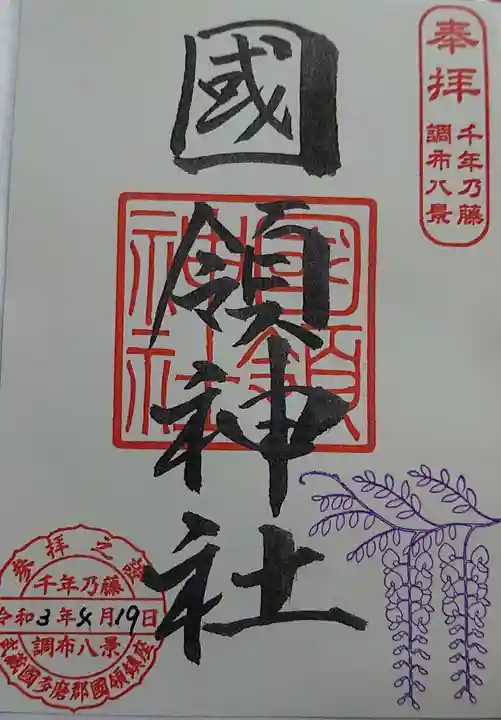 奉拝
千年乃藤
調布八景
國領神社
國領
神社
參拝之證
千年乃藤
令和3年4月19日
調布八景
武蔵國多磨郡國領鎮座